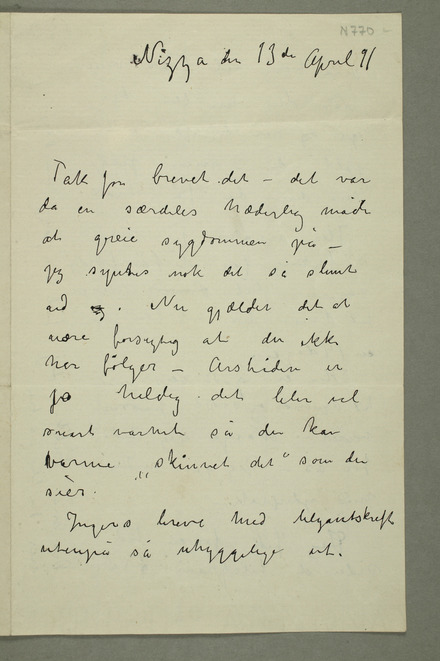 N 770
Nizza den 13de April 91
Tak for brevet dit – det var
da en særdeles hæderlig måde
at greie sygdommen på –
jeg syntes nok det så slemt
ud. Nu gjælder det at
være forsigtig at du ikke
har følger – Årstiden er
jo heldig det blir vel
snart varmt så du kan
varme "skinnet dit" som du
sier.
Ingers breve med
utenpå så uhyggelige ut.